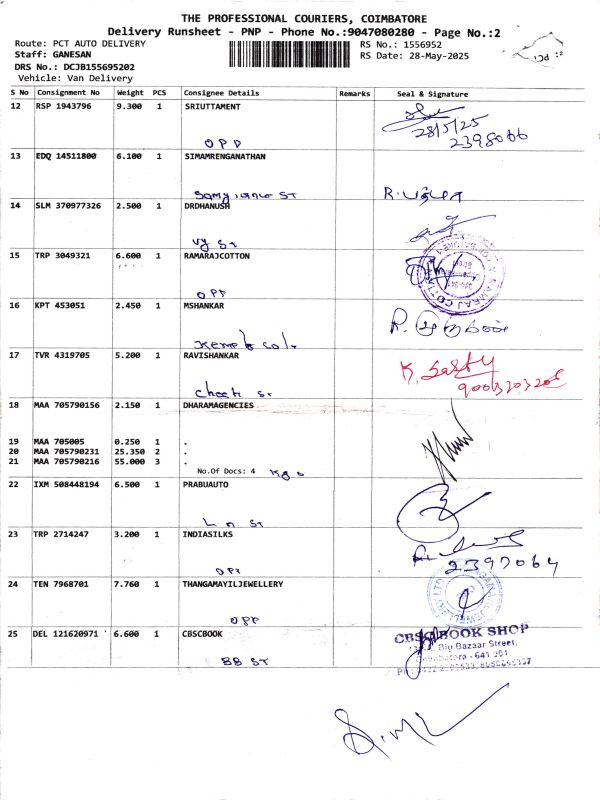 THE PROFESSIONAL COURIERS, COIMBATORE
Delivery Runsheet - PNP - Phone No.:9047080280 - Page No.:2
Route: PCT AUTO DELIVERY
RS No.: 1556952
Staff: GANESAN
RS Date: 28-May-2025
DRS No.: DCJB155695202
Vehicle: Van Delivery
S No Consignment No Weight PCS Consignee Details Remarks Seal & Signature
12 RSP 1943796 9.300 1 SRIUTTAMENT
28/5/25
2398066
OPP
13 EDQ 14511800 6.100 1 SIMAMRENGANATHAN
ST
14 SLM 370977326 2.500 1 DRDHANUSH
VY ST
15 TRP 3049321 6.600 1 RAMARAJCOTTON
OPP
16 KPT 453051 2.450 1 MSHANKAR
17 TVR 4319705 5.200 1 RAVISHANKAR
K. Sasty
ST
18 MAA 705790156 2.150 1 DHARAMAGENCIES
19 MAA 705005 0.250 1 .
20 MAA 705790231 25.350 2 .
21 MAA 705790216 55.000 3 .
No.Of Docs: 4
22 IXM 508448194 6.500 1 PRABUAUTO
L n ST
23 TRP 2714247 3.200 1 INDIASILKS
2397064
OPP
24 TEN 7968701 7.760 1 THANGAMAYILJEWELLERY
OPP
25 DEL 121620971 6.600 1 CBSCBOOK
CBSC BOOK SHOP
Big Bazaar Street,
Coimbatore - 641 001.
BB ST